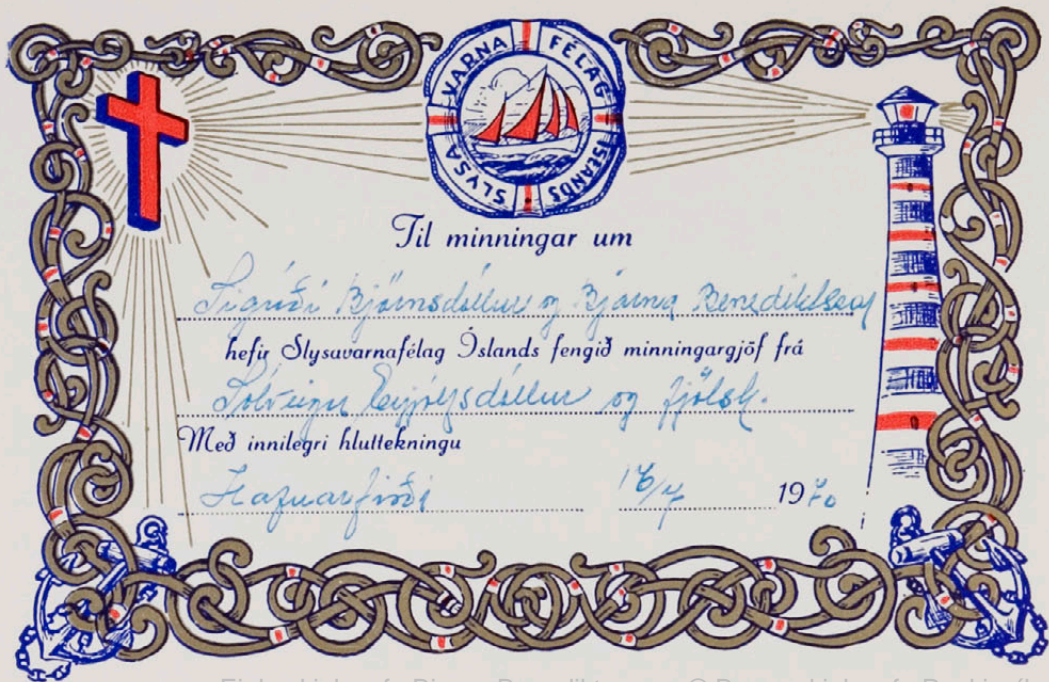 SLYSA VARNA FÉLAG ÍSLANDS
Til minningar um
Sigríði Björnsdóttur og Bjarna Benediktssyni
hefir Slysavarnafélag Íslands fengið minningargjöf frá
Sólveigu Eyjólfsdóttur og fjölsk.
Með innilegri hluttekningu
Hafnarfirði 16/7 1970